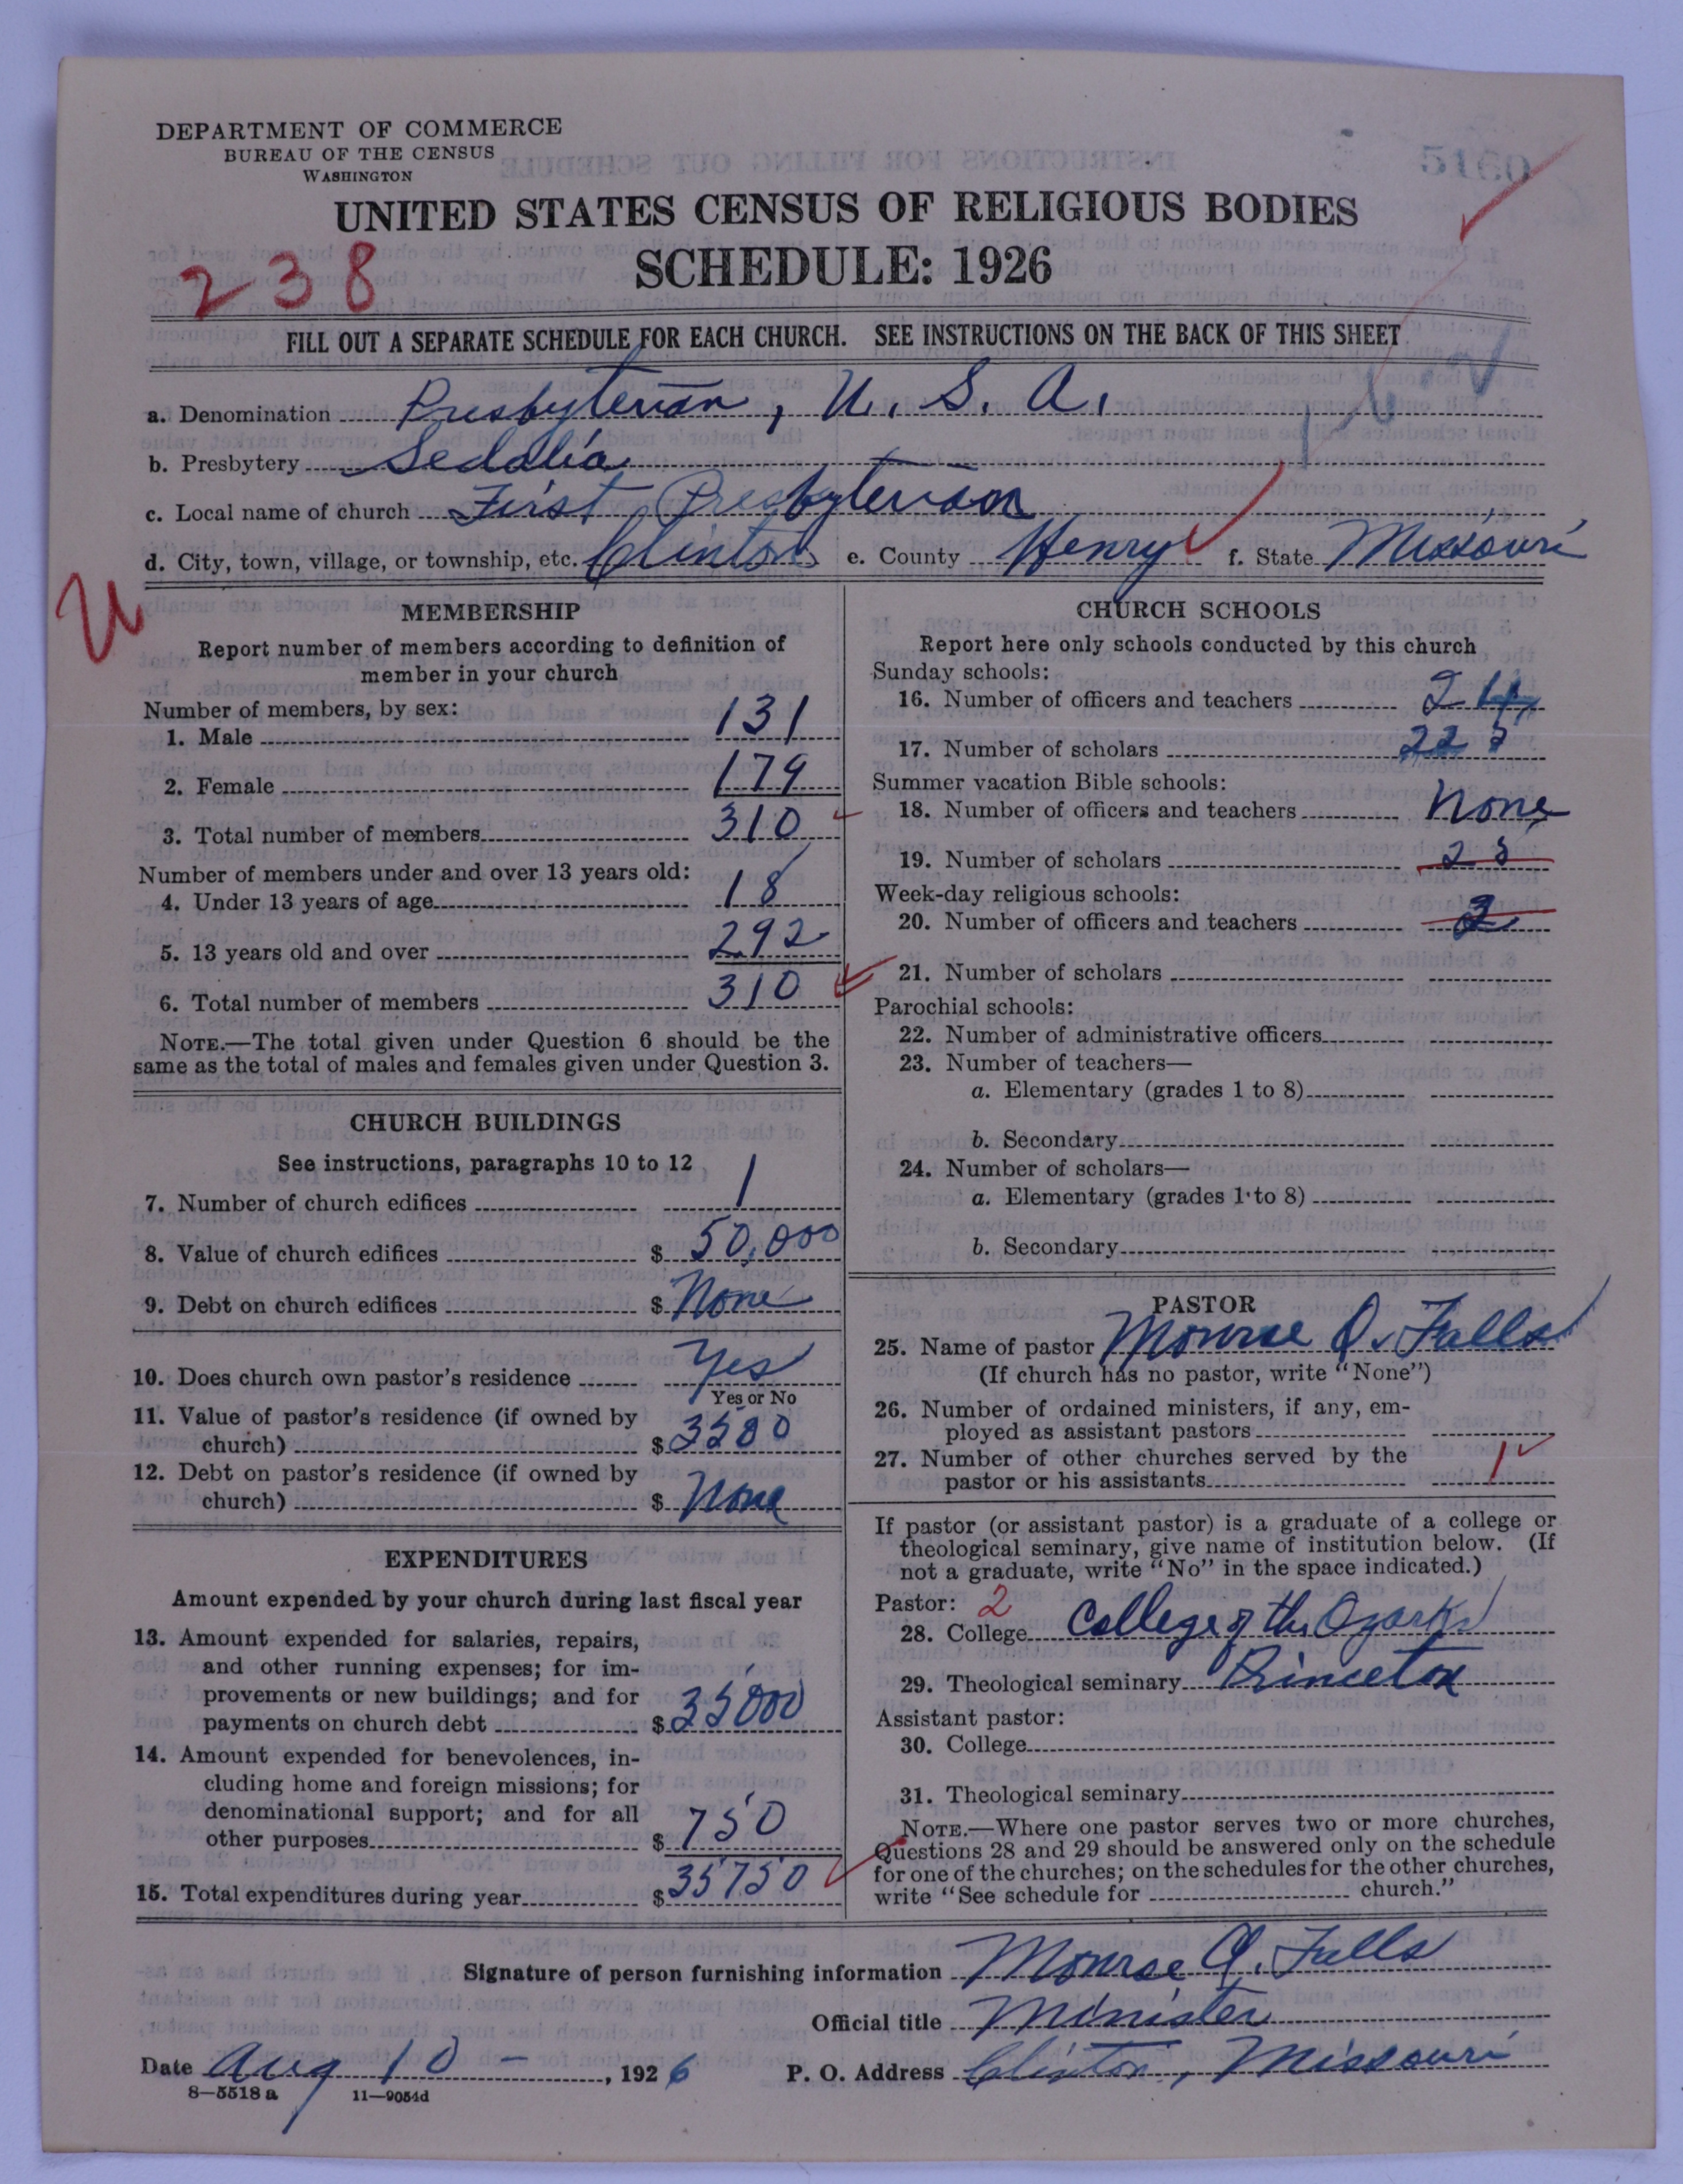 DEPARTMENT OF COMMERCE
BUREAU OF THE CENSUS
WASHINGTON
UNITED STATES CENSUS OF RELIGIOUS BODIES
SCHEDULE: 1926
238
FILL OUT A SEPARATE SCHEDULE FOR EACH CHURCH. SEE INSTRUCTIONS ON THE BACK OF THIS SHEET
a. Denomination Presbyterian, U. S. A.
b. Presbytery Sedalia
c. Local name of church First Presbyterian
d. City, town, village, or township, etc. Clinton e. County Henry f. State Missouri
MEMBERSHIP
Report number of members according to definition of
member in your church
Number of members, by sex:
1. Male 131
2. Female 179
3. Total number of members 310
Number of members under and over 13 years old:
4. Under 13 years of age 18
5. 13 years old and over 292
6. Total number of members 310
NOTE.—The total given under Question 6 should be the
same as the total of males and females given under Question 3.
CHURCH BUILDINGS
See instructions, paragraphs 10 to 12
7. Number of church edifices 1
8. Value of church edifices $ 50,000
9. Debt on church edifices $ None
10. Does church own pastor's residence Yes
Yes or No
11. Value of pastor's residence (if owned by
church) $ 3500
12. Debt on pastor's residence (if owned by
church) $ None
EXPENDITURES
Amount expended by your church during last fiscal year
13. Amount expended for salaries, repairs,
and other running expenses; for im-
provements or new buildings; and for
payments on church debt $ 35000
14. Amount expended for benevolences, in-
cluding home and foreign missions; for
denominational support; and for all
other purposes $ 750
15. Total expenditures during year $ 35750
CHURCH SCHOOLS
Report here only schools conducted by this church
Sunday schools:
16. Number of officers and teachers 24
17. Number of scholars
Summer vacation Bible schools:
18. Number of officers and teachers None
19. Number of scholars
Week-day religious schools:
20. Number of officers and teachers
21. Number of scholars
Parochial schools:
22. Number of administrative officers
23. Number of teachers—
a. Elementary (grades 1 to 8)
b. Secondary
24. Number of scholars—
a. Elementary (grades 1 to 8)
b. Secondary
PASTOR
25. Name of pastor Monroe Q. Falls
(If church has no pastor, write "None")
26. Number of ordained ministers, if any, em-
ployed as assistant pastors
27. Number of other churches served by the
pastor or his assistants 1
If pastor (or assistant pastor) is a graduate of a college or
theological seminary, give name of institution below. (If
not a graduate, write "No" in the space indicated.)
Pastor: 2
28. College College of the Ozarks
29. Theological seminary Princeton
Assistant pastor:
30. College
31. Theological seminary
NOTE.—Where one pastor serves two or more churches,
Questions 28 and 29 should be answered only on the schedule
for one of the churches; on the schedules for the other churches,
write "See schedule for church."
Signature of person furnishing information Monroe Q. Falls
Official title Minister
Date Aug 10 -, 1926 P. O. Address Clinton, Missouri
8—5518 a 11—9054d